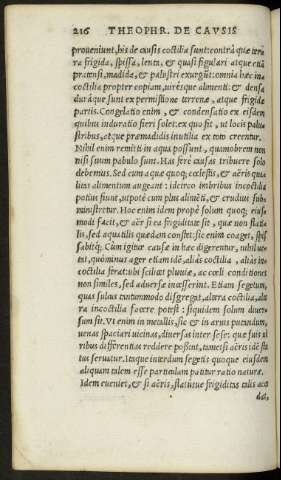 216 THEOPHR. DE CAVSIS
proueniunt, his de causis coctilia sunt: contrà quæ terra
ra frigida, spissa, lenta, & quasi figulari atque etiã
pratensi, madida, & palustri exurgũt: omnia hæc in=
coctilia propter copiam, uirésque alimenti: & densa
durâque sunt ex permistione terrenæ, atque frigidæ
partis. Congelatio enim, & condensatio ex eisdem
quibus induratio fieri solet: ex quo fit, ut locis palu=
stribus, atque præmadidis inutilia ex toto creentur.
Nihil enim remitti in aqua possunt, quamobrem non
nisi suum pabulo sunt. Has ferè causas tribuere solo
debemus. Sed cum aquæ quoq; cœlestis, & aëris qua
litas alimentum augeant: idcirco imbribus incoctilia
potius fiunt, utpote cum plus alimẽti, & crudius sub=
ministretur. Hoc enim idem propè solum quoq; eius=
modi facit, & aër si ea frigiditate sit, quæ non flati=
lis, sed aqua tilis quædam constet: sic enim coaget, spis
sabitq;. Cum igitur causæ in hæc digerentur, nihil ue=
tat, quominus ager etiam idẽ, aliàs coctilia, aliàs in=
coctilia ferat: ubi scilicet pluuiæ, ac cœli conditiones
non similes, sed aduersæ incesserint. Etiam segetum,
quas sulcus tantummodo disgreget, altera coctilia, alte
ra incoctilia facere potest: siquidem solum diuer=
sum sit. Vt enim in metallis, sic & in aruis putandum,
uenas spaciari uicinas, diuersas inter sese: quæ suis ui
ribus differentias reddere possent, tametsi aëris idẽ sta
tus seruatur. Itaque interdum segetis quoque eiusdem
aliquam talem esse particulam patitur ratio naturæ.
Idem eueniet, & si aëris, flatúsue frigiditas talis acci
dat,